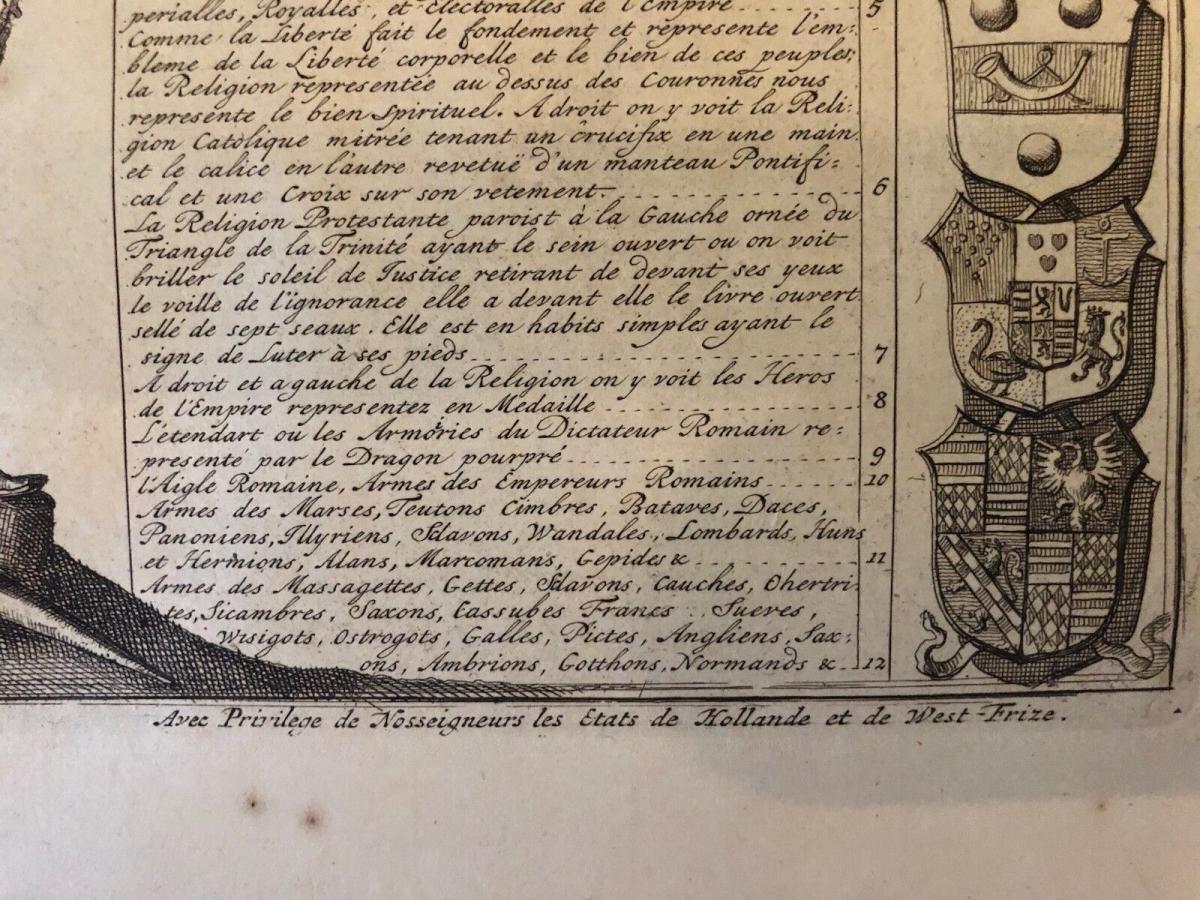 perialles, Royalles, et Electoralles de l'Empire 5
Comme la Liberté fait le fondement et represente l'em:
blême de la Liberté corporelle et le bien de ces peuples;
la Religion representée au dessus des Couronnes nous
represente le bien spirituel. A droit on y voit la Reli:
gion Catòlique mitrée tenant un crucifix en une main
et le calice en l'autre revetuë d'un manteau Pontifi:
cal et une Croix sur son vetement. 6
La Religion Protestante paroist à la Gauche ornée du
Triangle de la Trinité ayant le sein ouvert ou on voit
briller le soleil de Justice retirant de devant ses yeux
le voille de l'ignorance elle a devant elle le livre ouvert
sellé de sept seaux. Elle est en habits simples ayant le
signe de Luter à ses pieds 7
A droit et a gauche de la Religion on y voit les Heros
de l'Empire representez en Medaille 8
L'étendart ou les Armories du Dictateur Romain re:
presenté par le Dragon pourpré 9
l'Aigle Romaine, Armes des Empereurs Romains 10
Armes des Marses, Teutons Cimbres, Bataves, Daces,
Panoniens, Illyriens, Sclavons, Wandales, Lombards, Huns
et Hermions, Alans, Marcomans, Gepides & 11
Armes des Massagettes, Gettes, Sclavons, Cauches, Ohertri
tes, Sicambres, Saxons, Cassubes Francs Sueres,
Wisigots, Ostrogots, Galles, Pictes, Angliens, Sax:
ons, Ambrions, Gotthons, Normands & 12
Avec Privilege de Nosseigneurs les Etats de Hollande et de West-Frize.